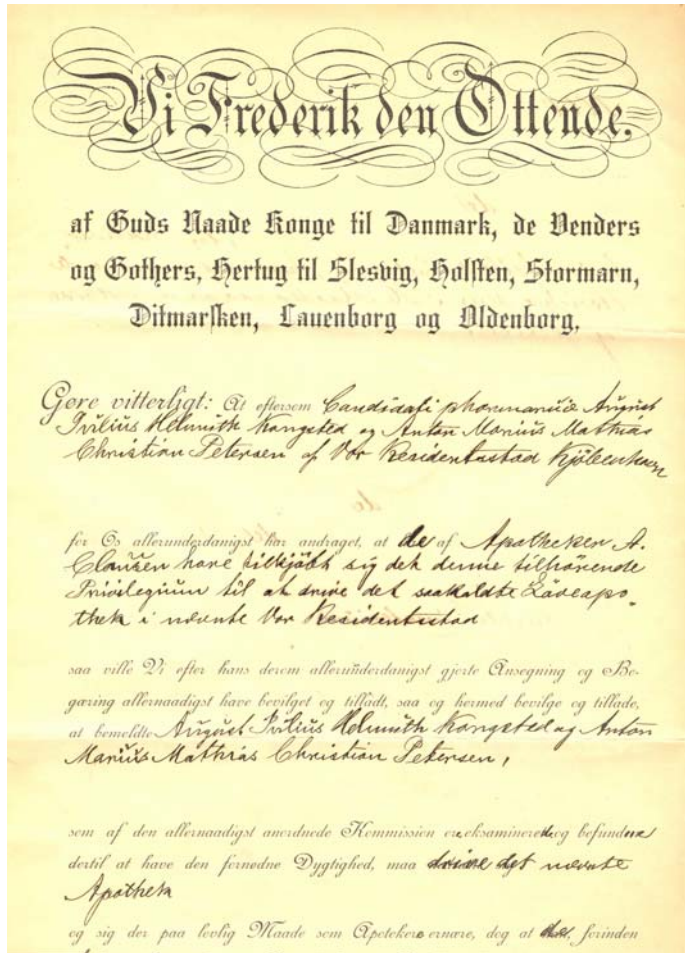 Vi Frederik den Ottende,
af Guds Naade Konge til Danmark, de Venders
og Gothers, Hertug til Slesvig, Holsten, Stormarn,
Ditmarsken, Lauenborg og Oldenborg,
Gøre vitterligt: At eftersom Candidati pharmaciæ August
Julius Helmuth Kongsted og Anton Marius Mathias
Christian Petersen af Vor Residentsstad Kjøbenhavn
for Os allerunderdanigst har andraget, at de af Apotheker A.
Clausen have tilkjøbt sig det denne tilhörende
Privilegium til at drive det saakaldte Löveapo-
thek i nævnte Vor Residentsstad
saa ville Vi efter hans derem allerunderdanigst gjorte Ansøgning og Be-
gæring allernaadigst have bevilget og tilladt, saa og hermed bevilge og tillade,
at bemeldte August Julius Helmuth Kongsted og Anton
Marius Mathias Christian Petersen,
som af den allernaadigst anordnede Kommission ere eksaminerede og befundne
dertil at have den fornødne Dygtighed, maa drive det nævnte
Apothek
og sig der paa lovlig Maade som Apotekere ernære, dog at de forinden